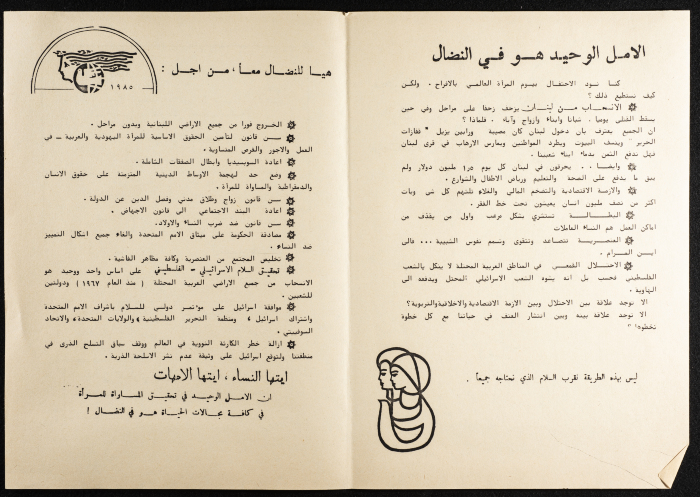 الامل الوحيد هو في النضال
كنا نود الاحتفال بيوم المرأة العالمي بالافراح . ولكن
كيف نستطيع ذلك ؟
الانسحاب من لبنان يزحف زحفا على مراحل وفي حين
يسقط القتلى يوميا . شبانا وابناء وازواج وآباء . فلماذا ؟
ان الجميع يعترف بان دخول لبنان كان مصيبة ورابين يزيل " قفازات
الحرير " وينسف البيوت ويطرد المواطنين ويمارس الارهاب في قرى لبنان
فهل ندفع الثمن بدماء ابناء شعبينا .
وايضا .. يحرقون في لبنان كل يوم ١٥ر مليون دولار ولم
يبق ما يدفع على الصحة والتعليم ورياض الاطفال والشوارع .
والازمة الاقتصادية والتضخم المالي والغلاء تلتهم كل شيء وبات
اكثر من نصف مليون انسان يعيشون تحت خط الفقر .
البطالة تستشري بشكل مرعب واول من يقذف من
اماكن العمل هم النساء العاملات
العنصرية تتصاعد وتتقوى وتسمم نفوس الشبيبة ... فالى
اين المرام .
الاحتلال القمعي في المناطق العربية المحتلة لا ينكل بالشعب
الفلسطيني فحسب بل انه يشوه الشعب الاسرائيلي المحتل ويدفعه الى
الهاوية .
الا توجد علاقة بين الاحتلال وبين الازمة الاقتصادية والاخلاقية والتربوية ؟
الا توجد علاقة بينه وبين انتشار العنف في حياتنا مع كل خطوة
نخطوها ؟
ليس بهذه الطريقة نقرب السلام الذي نحتاجه جميعاً .
١٩٨٥
هيا للنضال معاً ، من اجل :
الخروج فورا من جميع الاراضي اللبنانية وبدون مراحل .
سن قانون لتأمين الحقوق الاساسية للمرأة اليهودية والعربية – في
العمل والاجور والفرص المتساوية .
اعادة السوبسيديا وابطال الصفقات الشاملة .
وضع حد لهجمة الاوساط الدينية المتزمتة على حقوق الانسان
والدمقراطية والمساواة للمرأة .
سن قانون زواج وطلاق مدني وفصل الدين عن الدولة .
اعادة البند الاجتماعي الى قانون الاجهاض .
سن قانون ضد ضرب النساء والاولاد .
مصادقة الحكومة على ميثاق الامم المتحدة والغاء جميع اشكال التمييز
ضد النساء .
تخليص المجتمع من العنصرية وكافة مظاهر الفاشية .
تحقيق السلام الاسرائيلي – الفلسطيني على اساس واحد ووحيد هو
الانسحاب من جميع الاراضي العربية المحتلة ( منذ العام ١٩٦٧ ) ودولتين
للشعبين .
موافقة اسرائيل على مؤتمر دولي للسلام باشراف الامم المتحدة
واشتراك اسرائيل ، ومنظمة التحرير الفلسطينية والولايات المتحدة والاتحاد
السوفييتي .
ازالة خطر الكارثة النووية في العالم ووقف سباق التسلح الذري في
منطقتنا ولتوقع اسرائيل على وثيقة عدم نشر الاسلحة الذرية .
ايتها النساء ، ايتها الامهات
ان الامل الوحيد في تحقيق المساواة للمرأة
في كافة مجالات الحياة هو في النضال !